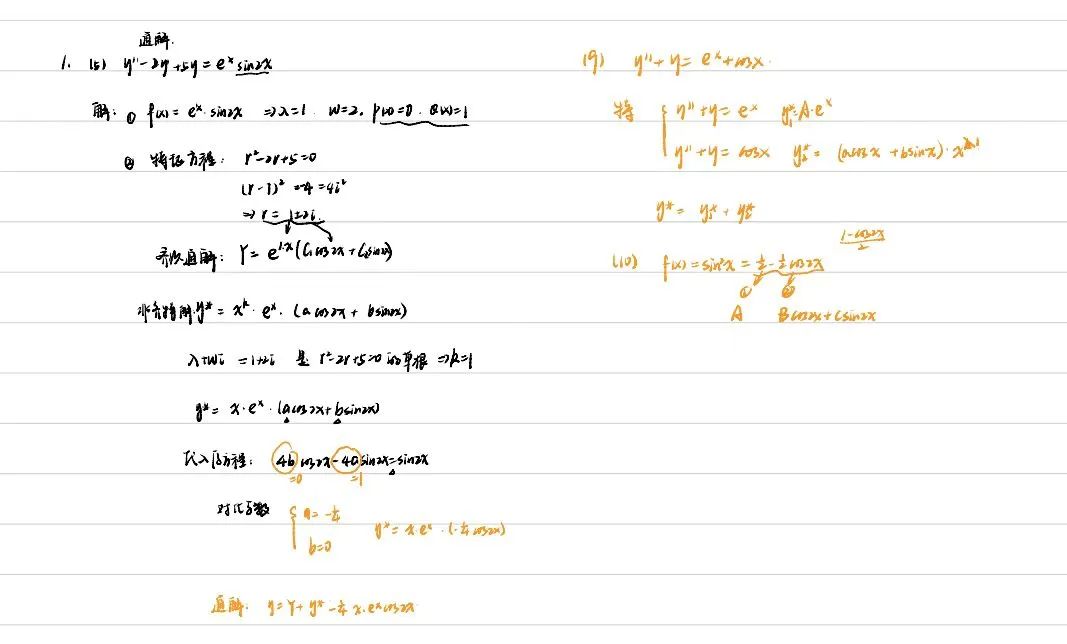 通解.
1. (5) y''-2y'+5y=e^x sin2x
解: ① f(x)=e^x·sin2x ⇒λ=1. W=2. P(x)=0. Q(x)=1
② 特征方程: r²-2r+5=0
(r-1)²=-4=4i²
⇒r=1±2i.
齐次通解: Y=e^{1·x}(C₁cos2x+C₂sin2x)
非齐特解y*=x^k·e^x·(acos2x+bsin2x)
λ+Wi=1+2i 是 r²-2r+5=0的单根⇒k=1
y*=x·e^x·(acos2x+bsin2x)
代入原方程: 4bcos2x-4asin2x=sin2x
=0 =1
对比系数 { a=-1/4
b=0
y*=x·e^x·(-1/4cos2x)
通解: y=Y+y* -1/4x·e^xcos2x
(9) y''+y=e^x+cosx.
特 { y''+y=e^x y₁*=A·e^x
y''+y=cosx y₂*=(acosx+bsinx)·x
y*=y₁*+y₂*
(1-cos2x)/2
(10) f(x)=sin²x=1/2-1/2cos2x
① ②
A Bcos2x+Csin2x